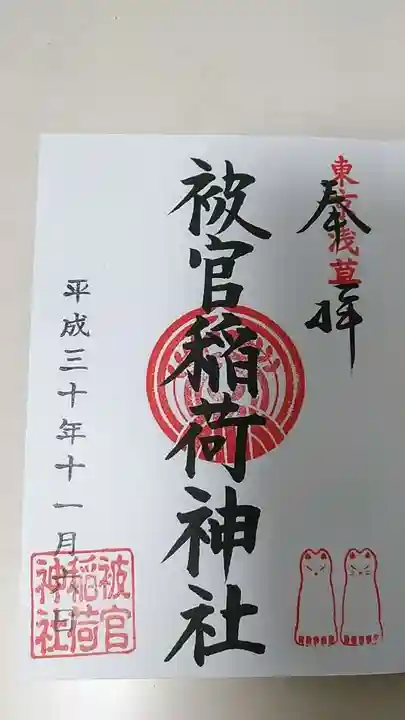 東京浅草
奉拝
被官稲荷神社
平成三十年十一月 日
被官
稲荷
神社